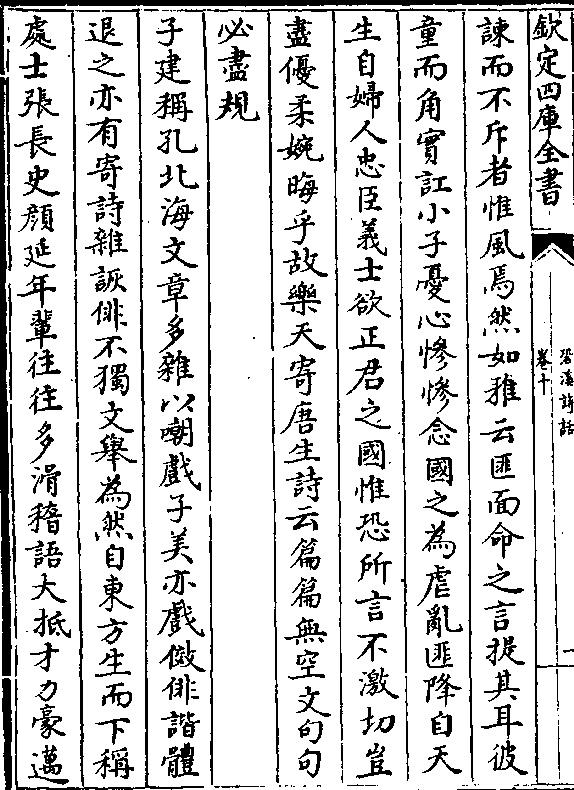 欽定四庫全書
䂬溪詩話
卷十
一
諫而不斥者惟風焉然如雅云匪面命之言提其耳彼
童而角實訌小子憂心慘慘念國之為虐亂匪降自天
生自婦人忠臣義士欲正君之國惟恐所言不激切豈
盡優柔婉晦乎故樂天寄唐生詩云篇篇無空文句句
必盡規
子建稱孔北海文章多雜以嘲戲子美亦戲傚俳諧體
退之亦有寄詩雜詼俳不獨文舉為然自東方生而下稱
處士張長史顔延年輩往往多滑稽語大抵才力豪邁